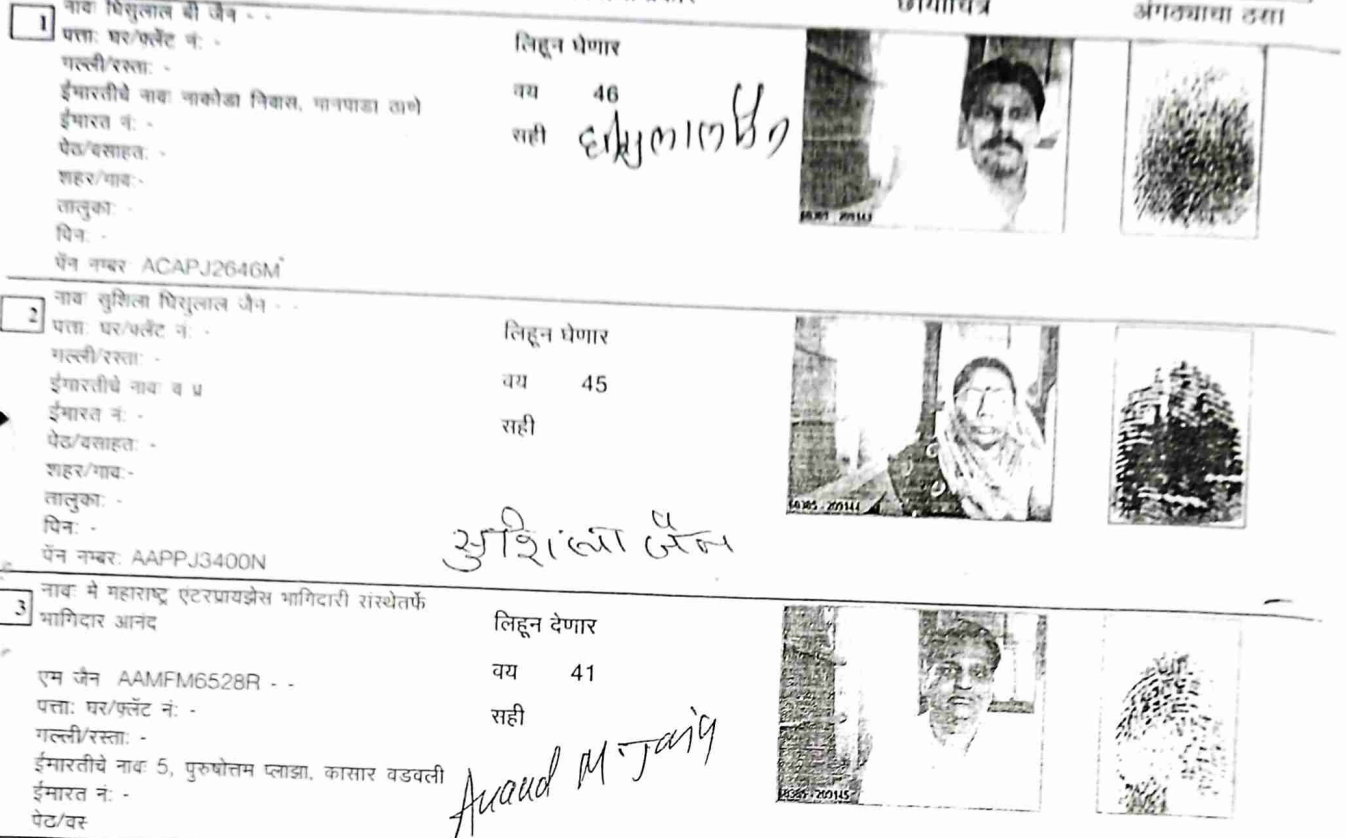 छायाचित्र अंगठ्याचा ठसा
1 नाव: घिसुलाल बी जैन - -
पत्ता: घर/फ्लॅट नं: -
गल्ली/रस्ता: -
ईमारतीचे नाव: नाकोडा निवास, मानपाडा ठाणे
ईमारत नं: -
पेठ/वसाहत: -
शहर/गाव:-
तालुका: -
पिन: -
पॅन नम्बर: ACAPJ2646M
लिहून घेणार
वय 46
सही घीसुलाल जैन
68385 - 209143
2 नाव: सुशिला घिसुलाल जैन - -
पत्ता: घर/फ्लॅट नं: -
गल्ली/रस्ता: -
ईमारतीचे नाव: व प्र
ईमारत नं: -
पेठ/वसाहत: -
शहर/गाव:-
तालुका: -
पिन: -
पॅन नम्बर: AAPPJ3400N
लिहून घेणार
वय 45
सही
सुशिला जैन
68385 - 209144
3 नाव: मे महाराष्ट्र एंटरप्रायझेस भागिदारी संस्थेतर्फे
भागिदार आनंद
एम जैन AAMFM6528R - -
पत्ता: घर/फ्लॅट नं: -
गल्ली/रस्ता: -
ईमारतीचे नाव: 5, पुरुषोत्तम प्लाझा, कासार वडवली
ईमारत नं: -
पेठ/वस
लिहून देणार
वय 41
सही
Anand M Jain
68385 - 209145